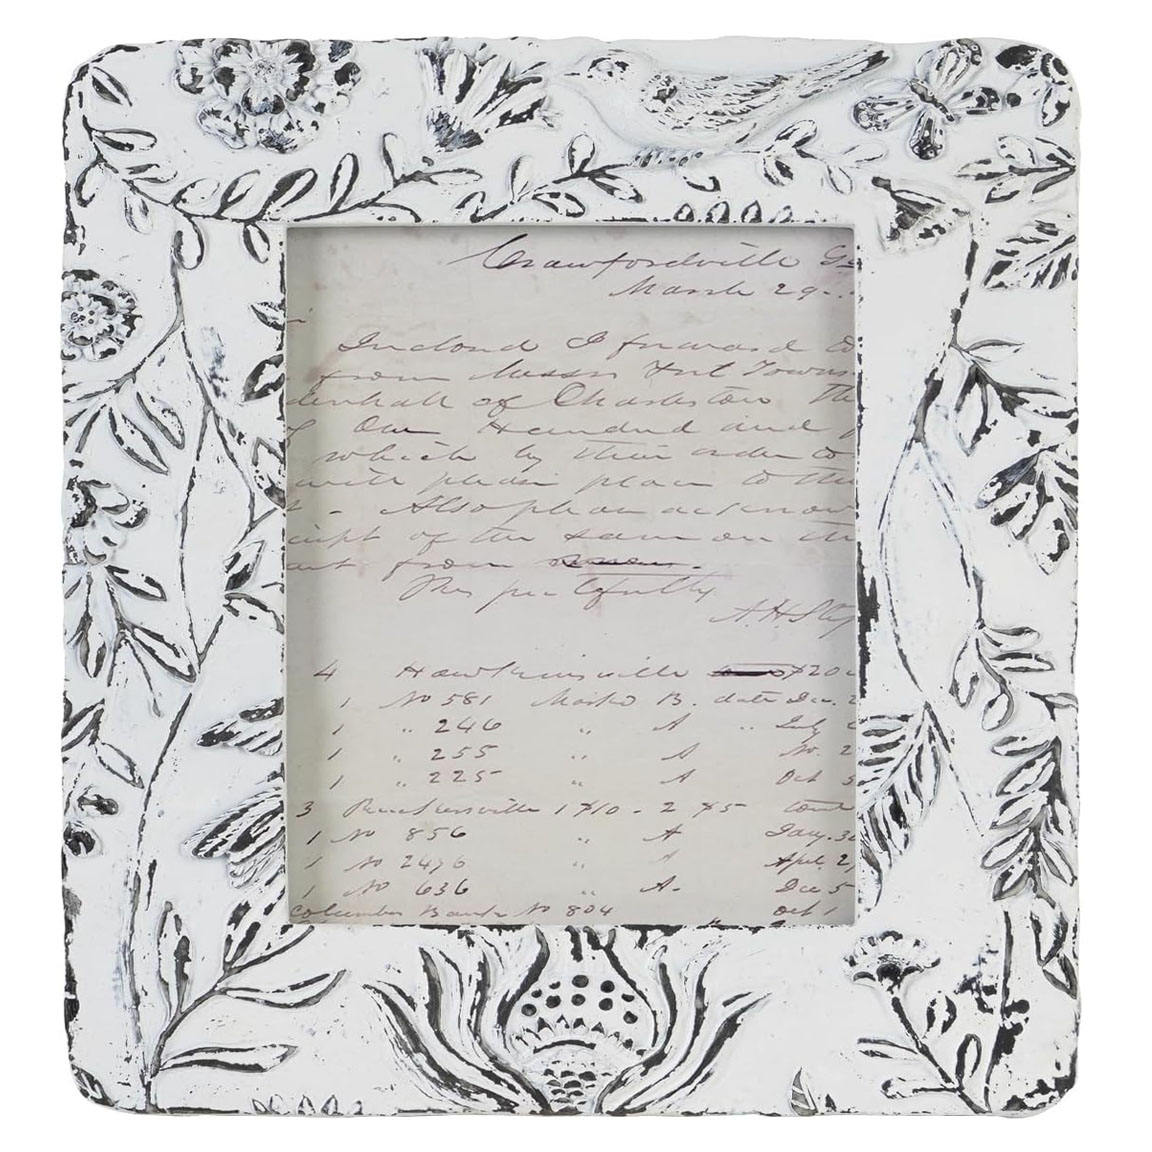 Crawfordville Ga
March 29
Inclosed I forward to
from Messrs
denhall of Charleston the
of One Hundred and
which by their order to
with pleas place to the
Also pleas acknow
cipt of the same on the
from
Respectfully
A.H.Ste
4 Hawkinsville $20
1 No 581 Marked B. date Dec. 2
1 " 246 " A " July
1 " 255 " A No. 2
1 " 225 " A Oct 5
3 1 $10 - 2 $5
1 No 856 " A Jany. 30
1 No 2496 " A Apl. 2
1 No 636 " A- Dec 5
Columbus Bank No 804 Oct 1